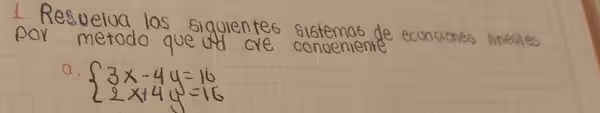 1 Resuelva los siguientes sistemas de ecuaciones lineales
por metodo que ud cre conveniente
a. { 3x-4y=16
{ 2x+4y=16